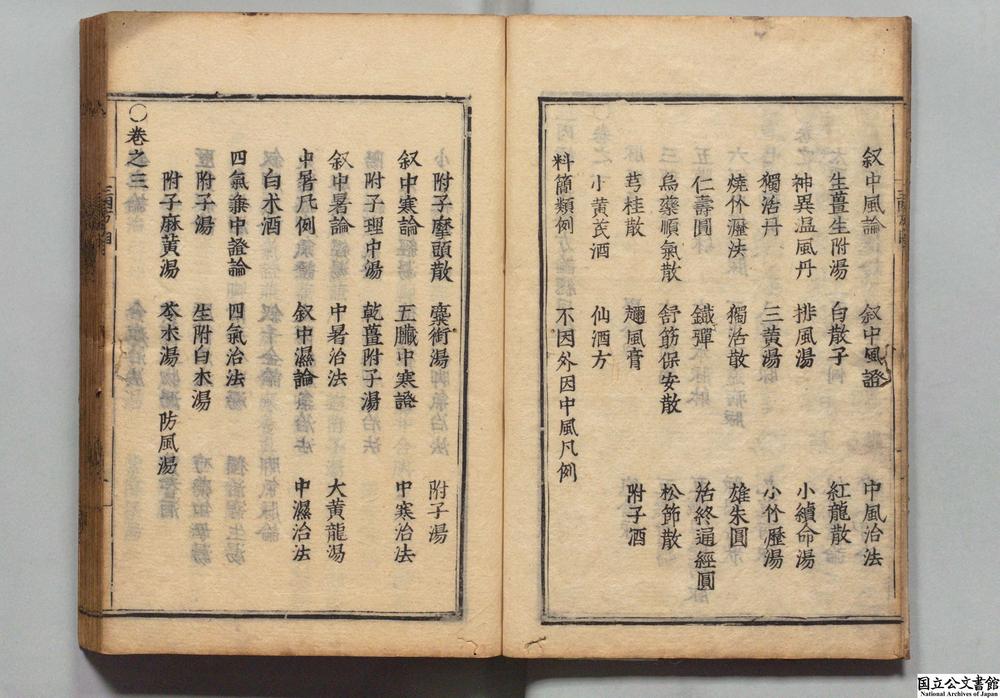 叙中風論 叙中風證 中風治法
生薑生附湯 白散子 紅龍散
神異温風丹 排風湯 小續命湯
獨活丹 三黄湯 小竹瀝湯
燒竹瀝法 獨活散 雄朱圓
仁壽圓 鐵彈 活終通經圓
烏藥順氣散 舒筋保安散 松節散
芎桂散 趐風膏 附子酒
小黄芪酒 仙酒方
料簡類例 不因外因中風凡例
附子摩頭散 薬衘湯 附子湯
叙中寒論 五臓中寒證 中寒治法
附子理中湯 乾薑附子湯
叙中暑論 中暑治法 大黄龍湯
中暑凡例 叙中濕論 中濕治法
白朮酒
四氣兼中證論 四氣治法
附子湯 生附白朮湯
附子麻黄湯 苓朮湯 防風湯
〇卷之三
国立公文書館
National Archives of Japan